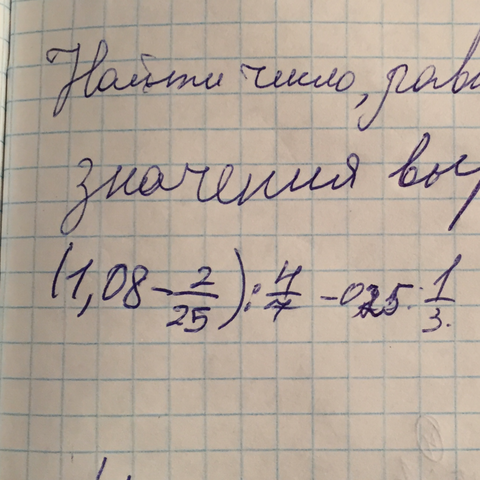 Найти число, рав
значения вы
(1,08 - 2/25) : 4/7 - 0,25 · 1/3